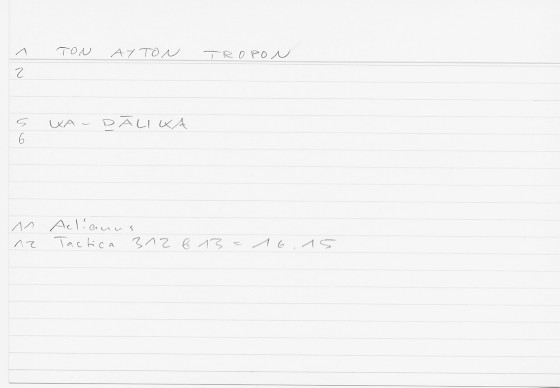 1 TON AYTON TROPON
2
5 WA-ḎĀLIKA
6
11 Aelianus
12 Tactica 312 B 13 = 16.15